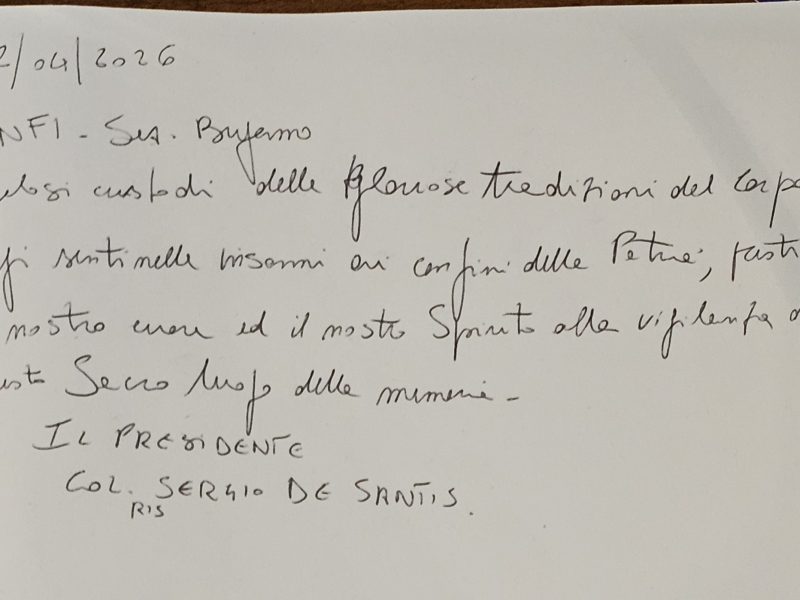 2/04/2026
NFI - Sez.
elosi custodi delle gloriose tradizioni del Corpo
sentinelle insonni ai confini della Patria,
nostro cuore ed il nostro Spirito alla vigilanza
Sacro luogo delle memorie -
IL PRESIDENTE
COL. SERGIO DE SANTIS.
RIS